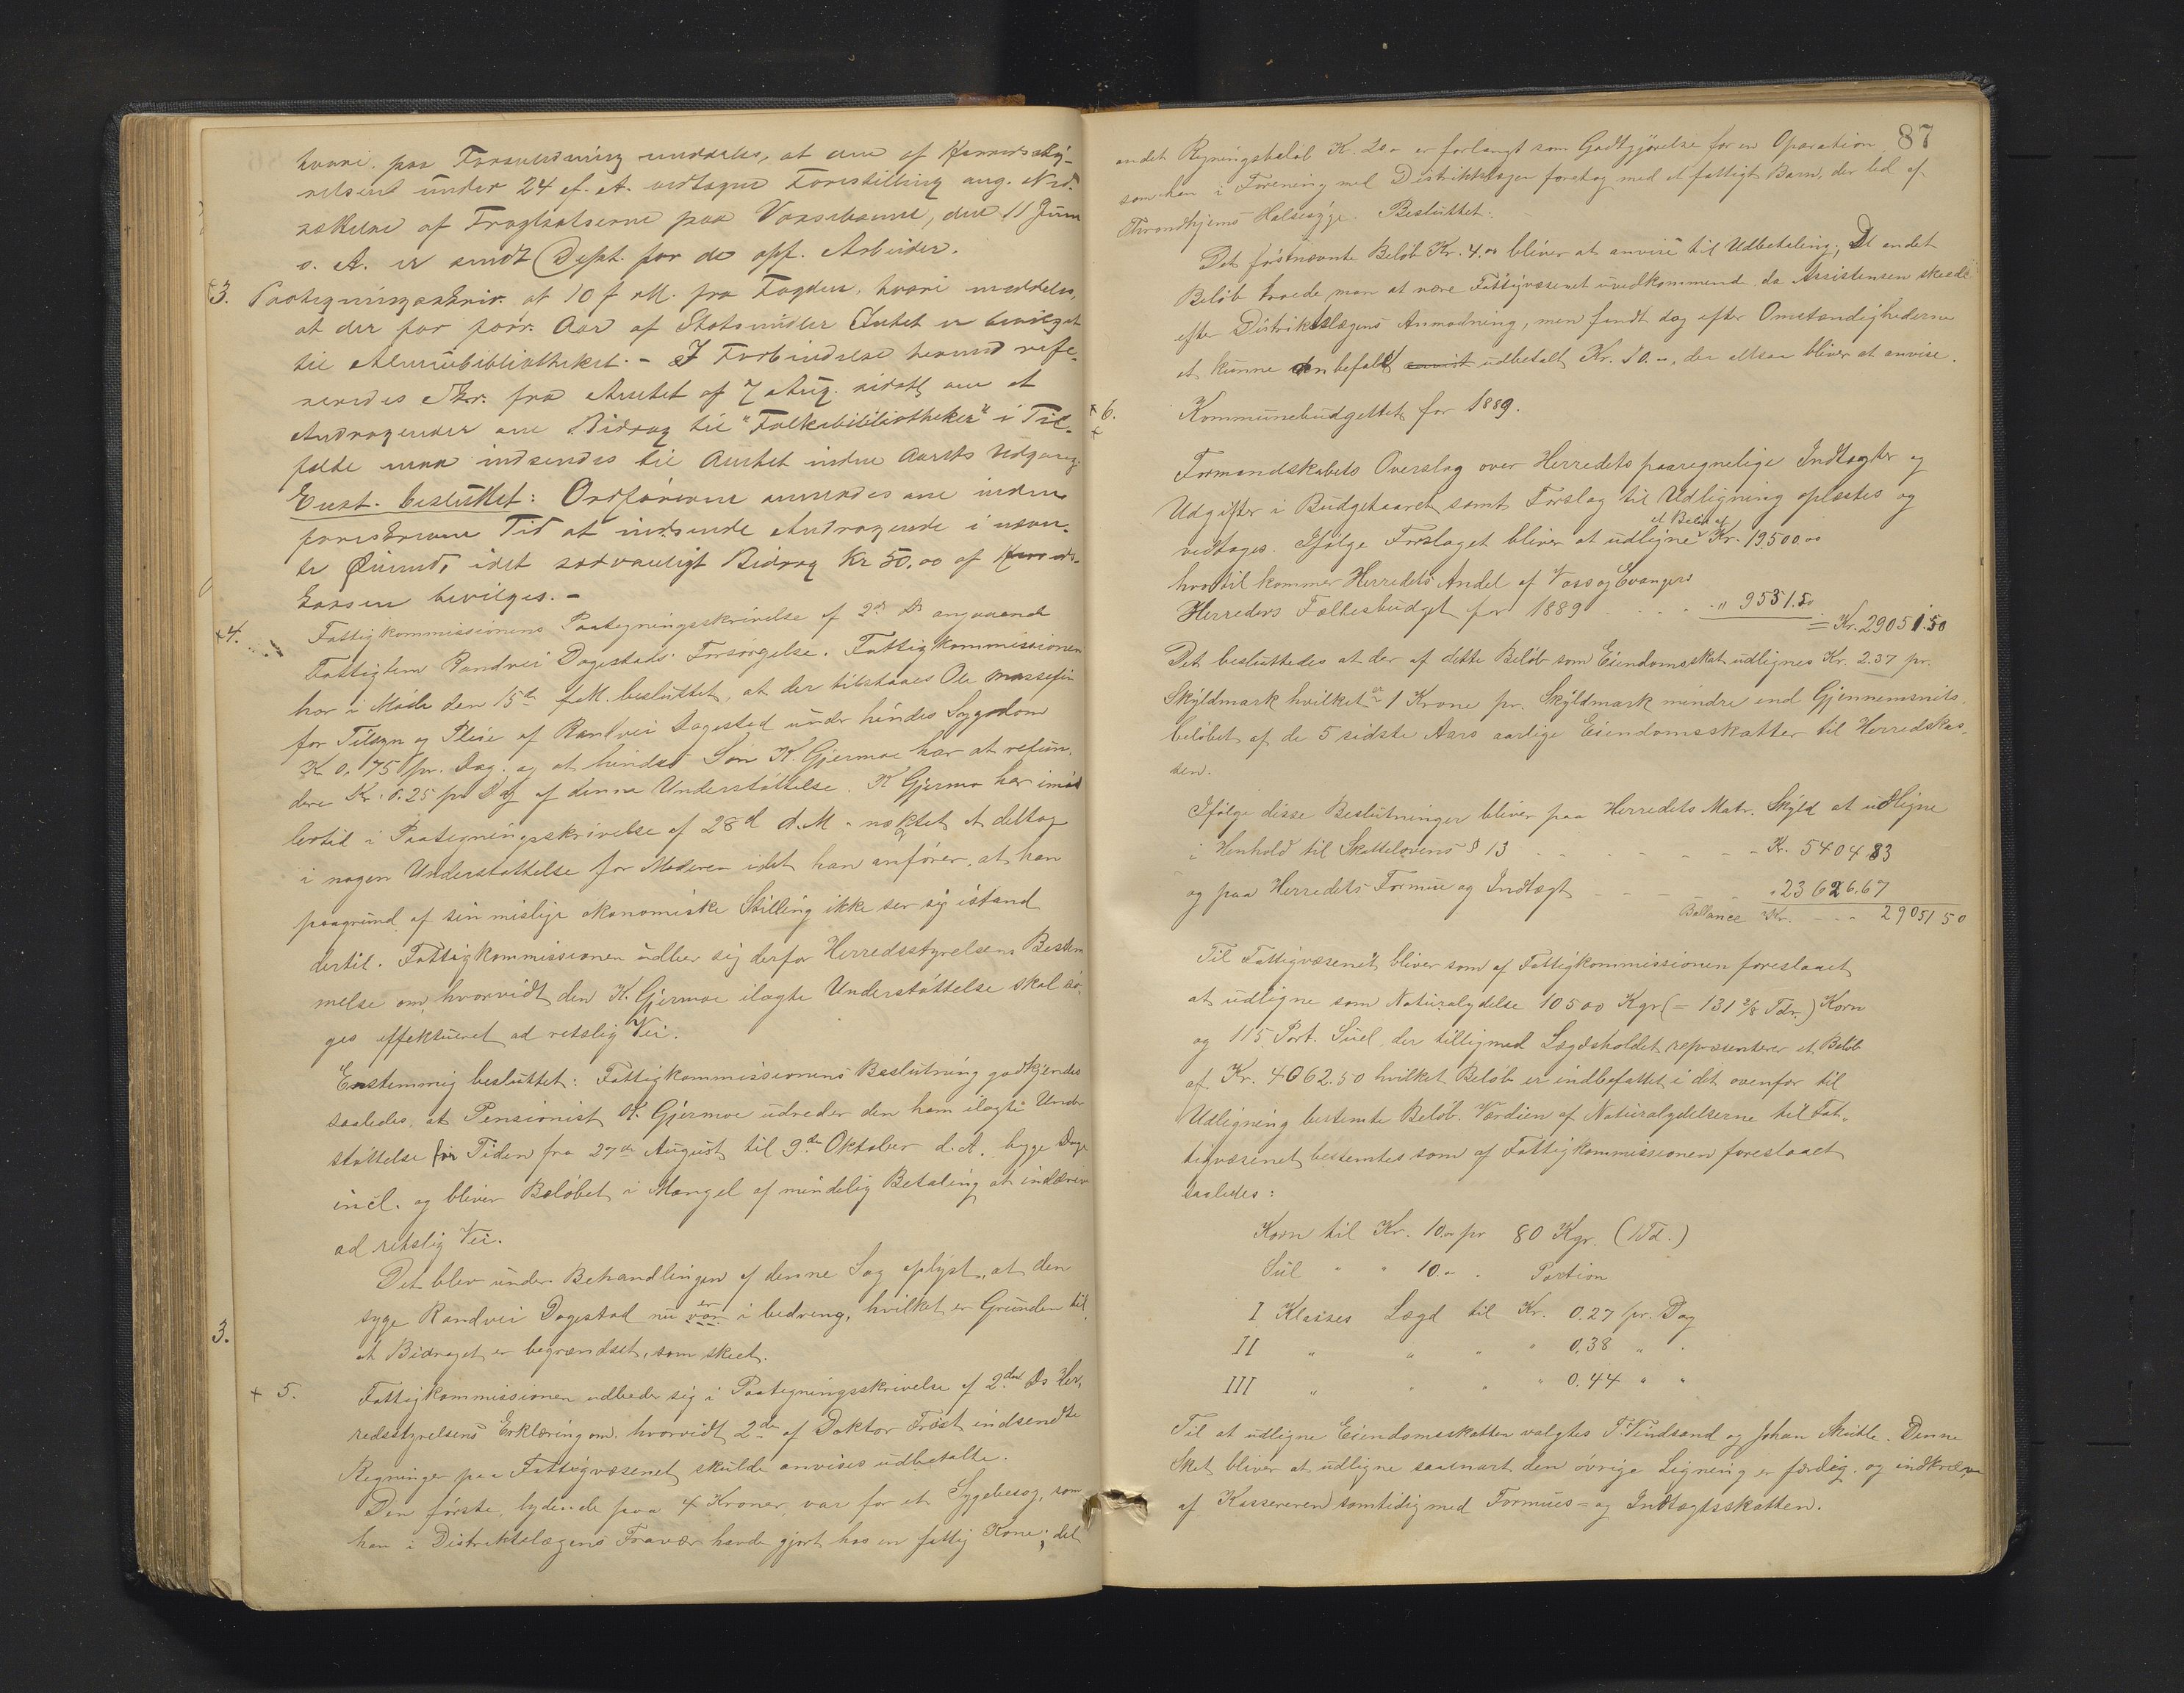 hvori paa Foranledning meddeles, at den af Herredssty-
relsen under 24 f. A. vedtagne Forestilling ang. Ned-
sættelse af Fragtsatserne paa Vossebanen, den 11 Juni
s. A. er sendt Dept. for de off. Arbeider.
3. Paategningsskriv. af 10 f. M. fra Fogden, hvori meddeles,
at der for forr. Aar af Statsmidler Intet er bevilget
til Almuebibliotheket. – I Forbindelse hermed refe-
reredes Skr. fra Amtet af 7 Aug. sidstl. om at
Andragender om Bidrag til "Folkebibliotheker" i Til-
fælde maa indsendes til Amtet inden Aarets Udgang.
Enst. besluttet: Ordføreren anmodes om inden
foreskreven Tid at indsende Andragende i nævn-
te Øiemed, idet sædvanligt Bidrag Kr 50,00 af Herreds-
kassen bevilges. –
4. Fattigkommissionens Paategningsskrivelse af 2d Ds angaaende
Fattiglem Randvei Dagestads Forsørgelse. Fattigkommissionen
har i Møde den 15de f.M. besluttet, at der tilstaaes Ole
for Tilsyn og Pleie af Randvei Dagestad under hendes Sygdom
Kr 0.75 pr. Dag og at hendes Søn K. Gjermoe har at refun-
dere Kr. 0.25 pr Dag af denne Understøttelse. K Gjermo har imid
lertid i Paategningsskrivelse af 28d d.M. nægtet at deltage
i nogen Understøttelse for Moderen idet han anfører, at han
paagrund af sin mislige økonomiske Stilling ikke ser sig istand
dertil. Fattigkommissionen udber sig derfor Herredsstyrelsens Bestem
melse om, hvorvidt den K. Gjermoe ilagte Understøttelse skal sø-
ges effektueret ad retslig Vei.
Enstemmig besluttet: Fattigkommissionens Beslutning godkjendes
saaledes, at Pensionist K. Gjermoe udreder den ham ilagte Under
støttelse for Tiden fra 27de August til 9de Oktober d.A. begge Dage
incl. og bliver Beløbet i Mangel af mindelig Betaling at inddrive
ad retslig Vei.
Det blev under Behandlingen af denne Sag oplyst, at den
syge Randvei Dagestad nu var er i bedring, hvilket er Grunden til
3.
at Bidraget er begrændset, som skeet.
5. Fattigkommissionen udbeder sig i Paategningsskrivelse af 2den Ds Her-
redsstyrelsens Erklæring om, hvorvidt 2de af Doktor Frøst indsendte
Regninger paa Fattigvæsenet skulde anvises udbetalte.
Den første, lydende paa 4 Kroner, var for et Sygebesøg, som
han i Distriktslægens Fravær havde gjort hos en fattig Kone; det
87
andet Regningsbeløb K. 20.- er forlangt som Godtgjørelse for en Operation
som han i Forening med Distriktslægen foretog med et fattigt Barn, der led af
Throndhjems Halsesyge. Besluttet:
Det førstnævnte Beløb Kr. 4.00 bliver at anvise til Udbetaling; Det andet
Beløb troede man at være Fattigvæsenet uvedkommende da Assistensen skeede
efter Distriktslægens Anmodning, men fandt dog efter Omstændighederne
at kunne anbefalet udbetalt Kr. 10.-, der altsaa bliver at anvise.
6. Kommunebudgettet for 1889.
Formandskabets Overslag over Herredets paaregnelige Indtægter og
Udgifter i Budgetaaret samt Forslag til Udligning oplæstes og
vedtoges. Ifølge Forslaget bliver at udligne et Beløb af Kr. 19500.00
hvortil kommer Herredets Andel af Voss og Evangers
Herreders Fællesbudget for 1889 . . . . " 9551.50
= Kr. 29051.50
Det besluttedes at der af dette Beløb som Eiendomsskat udlignes Kr. 2.37 pr.
Skyldmark hvilket er 1 Krone pr. Skyldmark mindre end Gjennemsnits-
beløbet af de 5 sidste Aars aarlige Eiendomsskatter til Herredskas-
sen.
Ifølge disse Beslutninger bliver paa Herredets Matr. Skyld at udligne
i Henhold til Skattelovens § 13 - - - - - - Kr. 5404 83
og paa Herredets Formue og Indtægt - - - - " 23626.67
Ballance Kr. - - - 29051 50
Til Fattigvæsenet bliver som af Fattigkommissionen foreslaaet
at udligne som Naturalydelse 10500 Kgr (= 131 2/8 Tdr.) Korn
og 115 Port. Suel, der tilligemed Lægdsholdet repræsenterer et Beløb
af Kr. 4062.50 hvilket Beløb er indbefattet i det ovenfor til
Udligning bestemte Beløb. Værdien af Naturalydelserne til Fat-
tigvæsenet bestemtes som af Fattigkommissionen foreslaaet
saaledes:
Korn til Kr. 10.00 pr 80 Kgr. (1 Td.)
Suel " " 10.- " Portion
I Klasses Lægd til Kr. 0.27 pr. Dag
II " " " " 0,38 " "
III " " " " 0.44 " "
Til at udligne Eiendomsskatten valgtes T. Vindsand og Johan Skutle. Denne
Skat bliver at udligne saasnart den øvrige Ligning er færdig og indkræves
af Kassereren samtidig med Formues- og Indtægtsskatten.